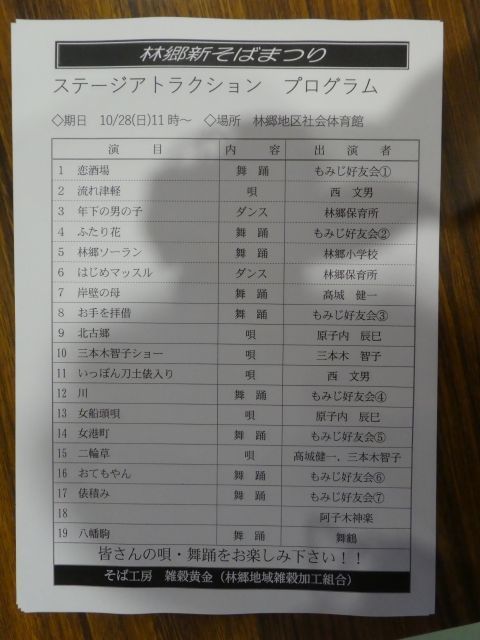 林郷新そばまつり
ステージアトラクション　プログラム
◇期日　10/28(日)11時～　◇場所　林郷地区社会体育館
演　目　内　容　出　演　者
1　恋酒場　舞　踊　もみじ好友会①
2　流れ津軽　唄　西　文男
3　年下の男の子　ダンス　林郷保育所
4　ふたり花　舞　踊　もみじ好友会②
5　林郷ソーラン　舞　踊　林郷小学校
6　はじめマッスル　ダンス　林郷保育所
7　岸壁の母　舞　踊　髙城　健一
8　お手を拝借　舞　踊　もみじ好友会③
9　北古郷　唄　原子内　辰巳
10　三本木智子ショー　唄　三本木　智子
11　いっぽん刀土俵入り　唄　西　文男
12　川　舞　踊　もみじ好友会④
13　女船頭唄　唄　原子内　辰巳
14　女港町　舞　踊　もみじ好友会⑤
15　二輪草　唄　髙城健一．三本木智子
16　おてもやん　舞　踊　もみじ好友会⑥
17　俵積み　舞　踊　もみじ好友会⑦
18　阿子木神楽
19　八幡駒　舞　踊　舞鶴
皆さんの唄・舞踊をお楽しみ下さい！！
そば工房　雑穀黄金（林郷地域雑穀加工組合）